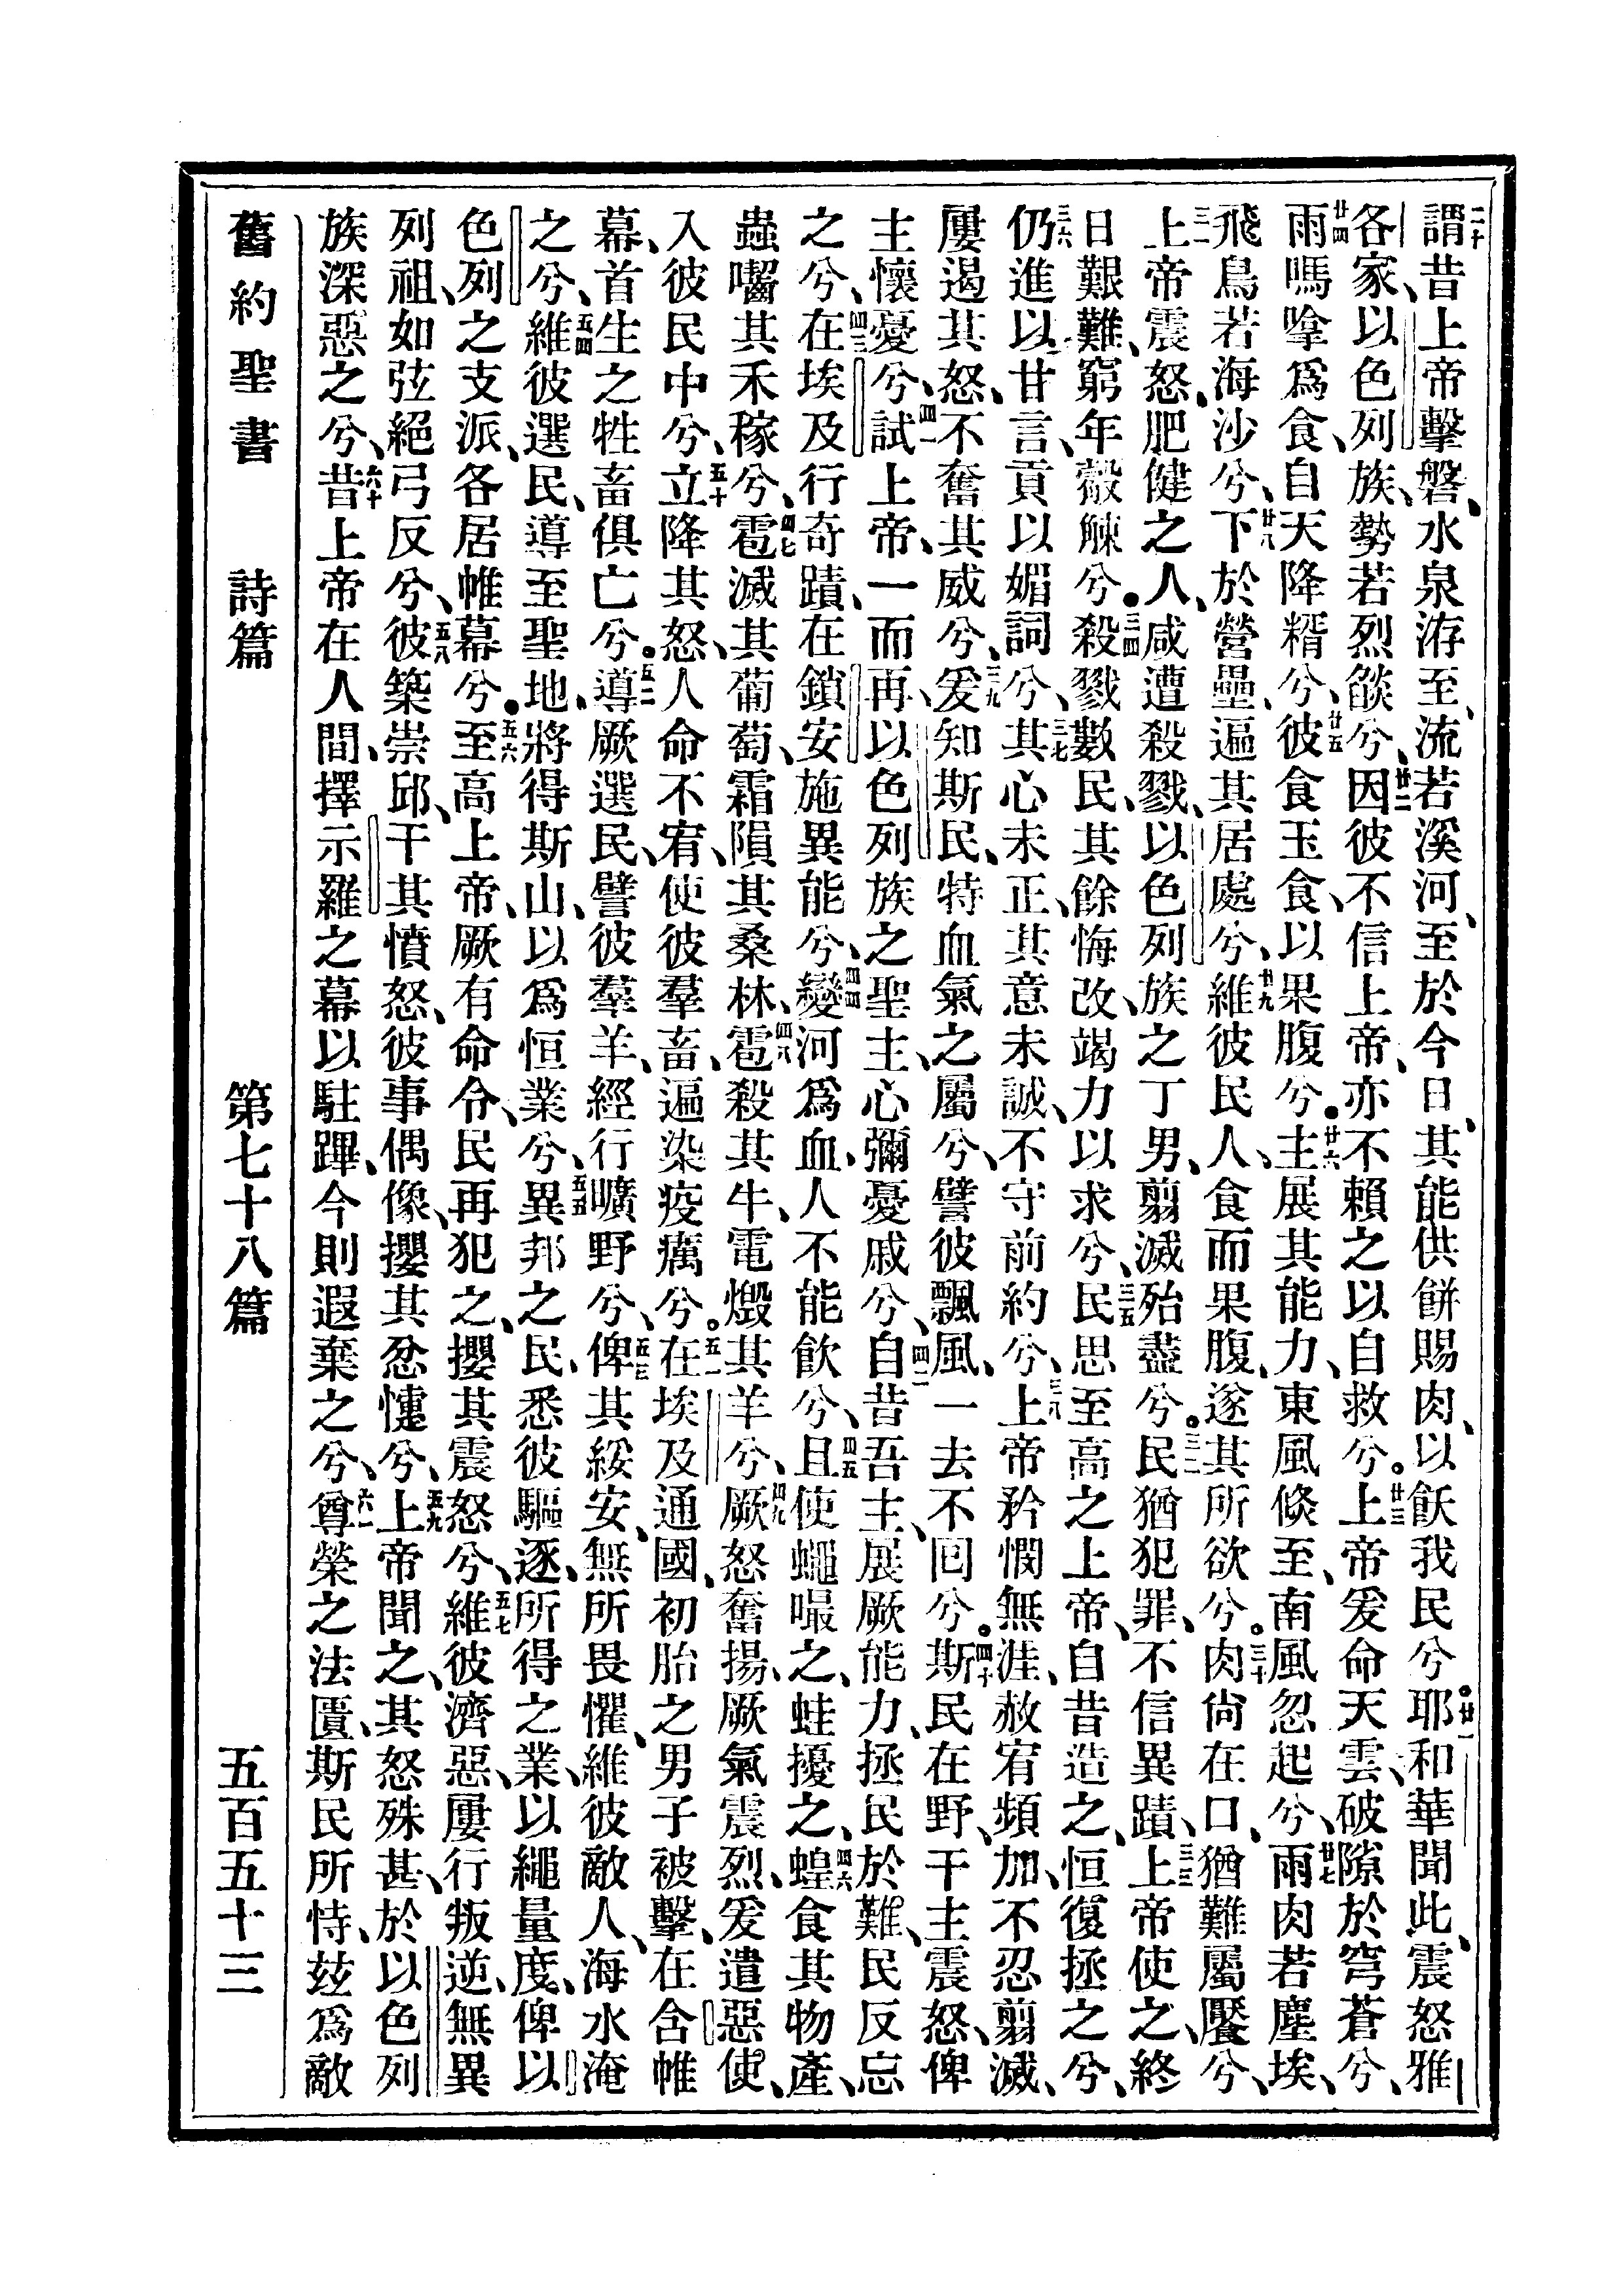 二十謂昔上帝擊磐、水泉洊至、流若溪河、至於今日、其能供餅賜肉、以飫我民兮。廿一耶和華聞此、震怒雅
各家、以色列族、勢若烈燄兮、廿二因彼不信上帝、亦不賴之以自救兮。廿三上帝爰命天雲、破隙於穹蒼兮、
廿四雨嗎嗱爲食、自天降糈兮、廿五彼食玉食、以果腹兮。廿六主展其能力、東風倐至、南風忽起兮、廿七雨肉若塵埃、
飛鳥若海沙兮、廿八下於營壘、遍其居處兮、廿九維彼民人、食而果腹、遂其所欲兮。三十肉尙在口、猶難屬饜兮、
三一上帝震怒、肥健之人、咸遭殺戮、以色列族之丁男、翦滅殆盡兮。三二民猶犯罪、不信異蹟、三三上帝使之、終
日艱難、窮年觳觫兮。三四殺戮數民、其餘悔改、竭力以求兮、三五民思至高之上帝、自昔造之、恒復拯之兮、
三六仍進以甘言、貢以媚詞兮、三七其心未正、其意未誠、不守前約兮、三八上帝矜憫無涯、赦宥頻加、不忍翦滅、
屢遏其怒、不奮其威兮、三九爰知斯民、特血氣之屬兮、譬彼飄風、一去不回兮。四十斯民在野、干主震怒、俾
主懷憂兮、四一試上帝、一而再、以色列族之聖主、心彌憂戚兮、四二自昔吾主、展厥能力、拯民於難、民反忘
之兮、四三在埃及行奇蹟、在鎖安施異能兮、四四變河爲血、人不能飮兮、四五且使蠅嘬之、蛙擾之、四六蝗食其物產、
蟲囓其禾稼兮、四七雹滅其葡萄、霜隕其桑林、四八雹殺其牛、電燬其羊兮、四九厥怒奮揚、厥氣震烈、爰遣惡使、
入彼民中兮、五十立降其怒、人命不宥、使彼羣畜、遍染疫癘兮。五一在埃及通國、初胎之男子被擊、在含帷
幕、首生之牲畜俱亡兮。五二導厥選民、譬彼羣羊、經行曠野兮、五三俾其綏安、無所畏懼、維彼敵人、海水淹
之兮、五四維彼選民、導至聖地、將得斯山、以爲恒業兮、五五異邦之民、悉彼驅逐、所得之業、以繩量度、俾以
色列之支派、各居帷幕兮。五六至高上帝、厥有命令、民再犯之、攖其震怒兮、五七維彼濟惡、屢行叛逆、無異
列祖、如弦絕弓反兮、五八彼築崇邱、干其憤怒、彼事偶像、攖其忿懥兮、五九上帝聞之、其怒殊甚、於以色列
族深惡之兮、六十昔上帝在人間、擇示羅之幕以駐蹕、今則遐棄之兮、六一尊榮之法匱、斯民所恃、玆爲敵
舊約聖書 詩篇 第七十八篇 五百五十三